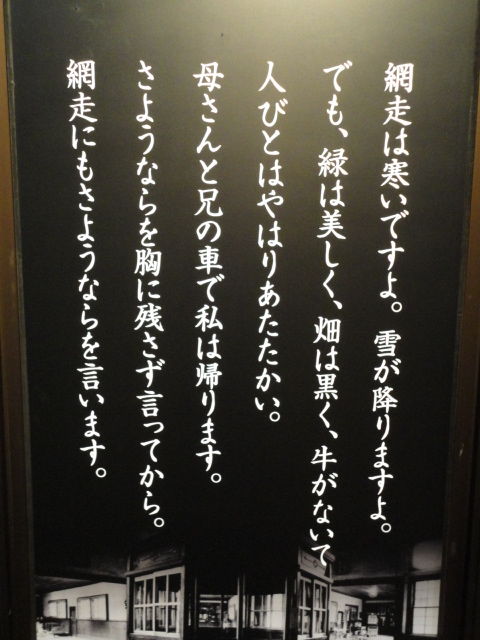 網走は寒いですよ。雪が降りますよ。
でも、緑は美しく、畑は黒く、牛がないて
人びとはやはりあたたかい。
母さんと兄の車で私は帰ります。
さようならを胸に残さず言ってから。
網走にもさようならを言います。